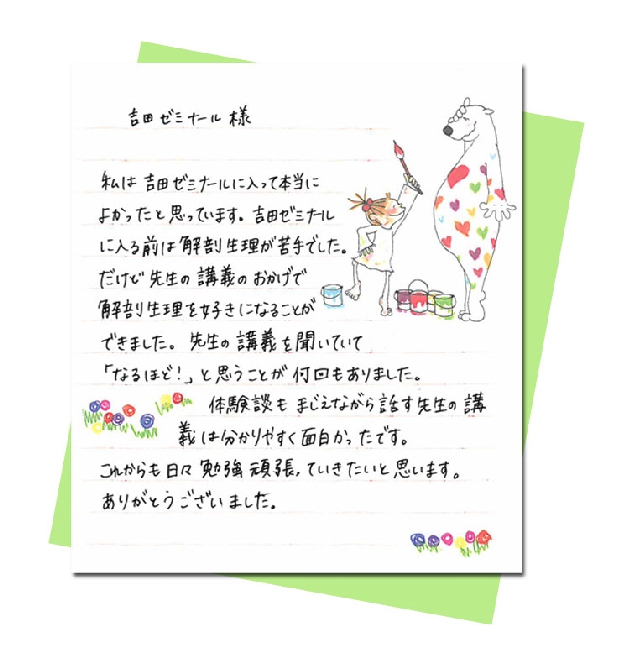 吉田ゼミナール様
私は吉田ゼミナールに入って本当に
よかったと思っています。吉田ゼミナール
に入る前は解剖生理が苦手でした。
だけど先生の講義のおかげで
解剖生理を好きになることが
できました。先生の講義を聞いていて
「なるほど!」と思うことが何回もありました。
体験談もまじえながら話す先生の講
義は分かりやすく面白かったです。
これからも日々勉強頑張っていきたいと思います。
ありがとうございました。